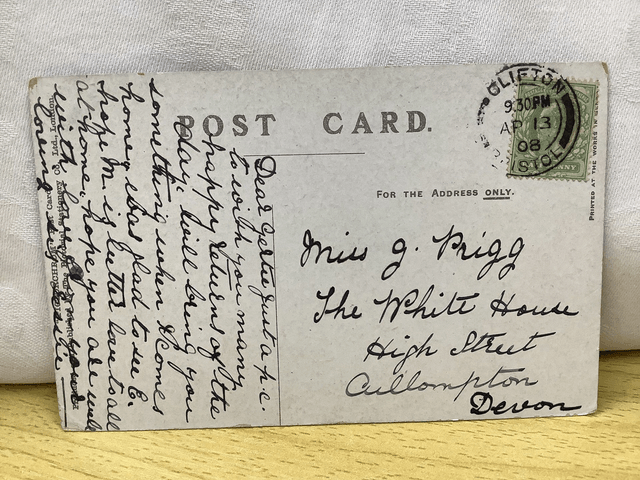 POST CARD.
FOR THE ADDRESS ONLY.
CLIFTON
9.30PM
AP 13
08
BRISTOL
PRINTED AT THE WORKS IN
Miss G. Prigg
The White House
High Street
Cullompton
Devon
Dear Gertie just a p.c.
to wish you many
happy returns of the
day. Will bring you
something when I come
home, was glad to see E.
hope M. is better love to all
at home, hope you are well
with love
loving
Co. Ltd., London